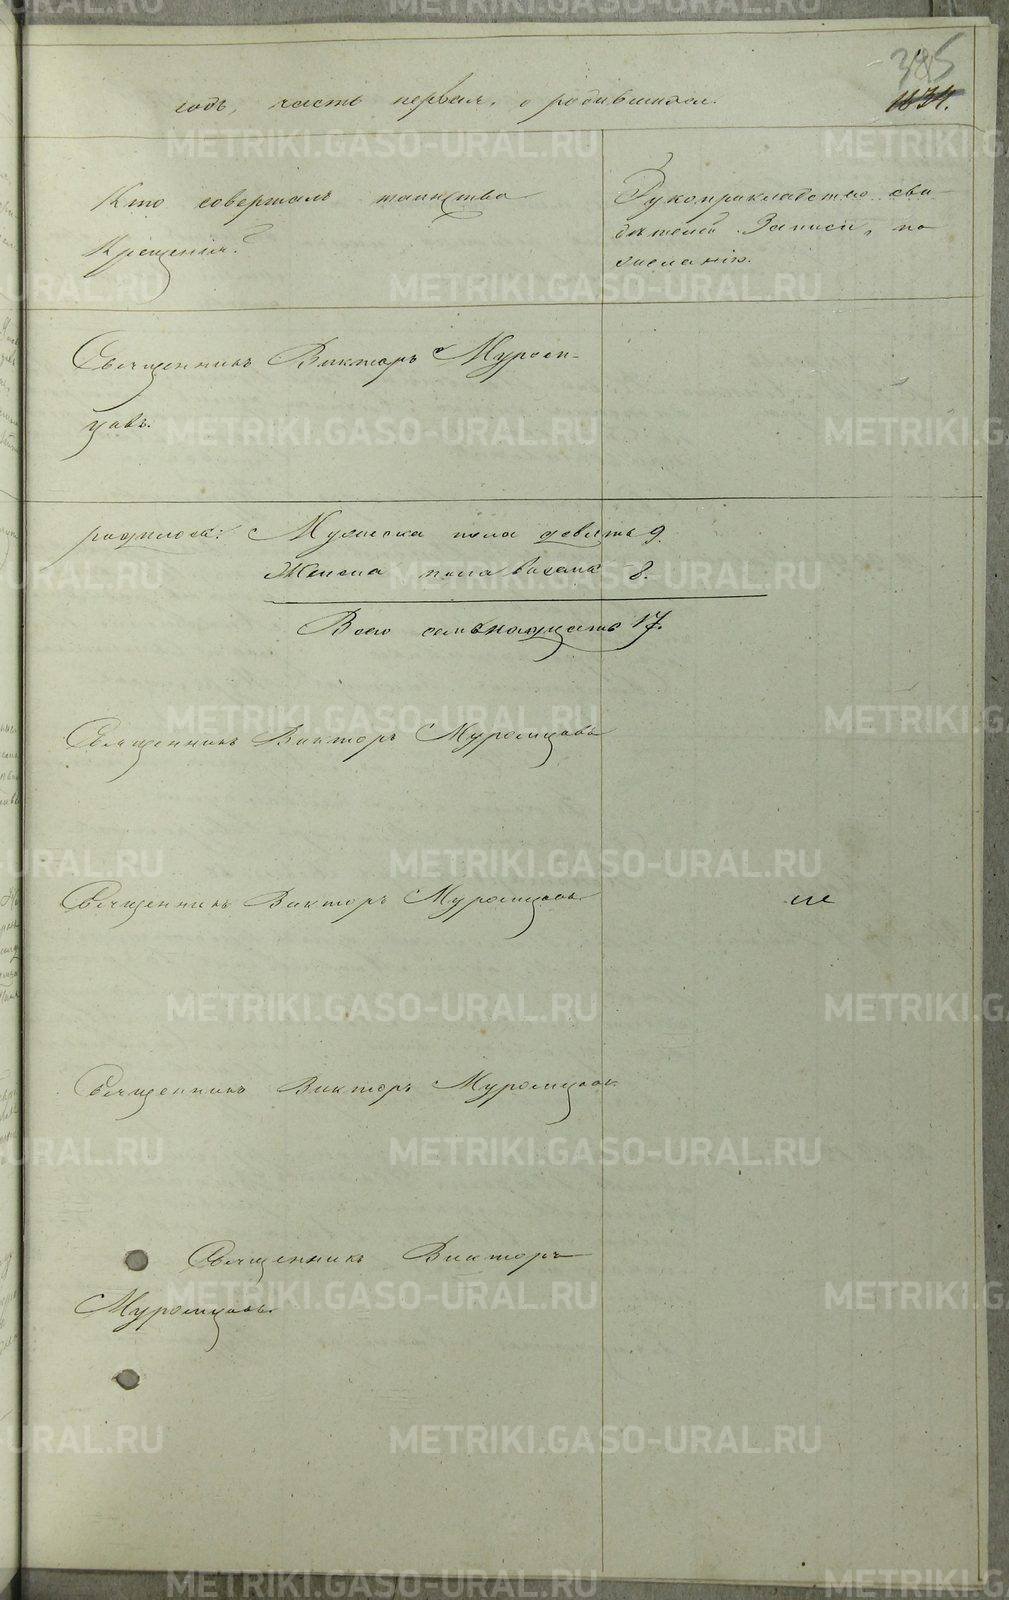 385
годъ, часть первая, о родившихся.
1834.
Кто совершалъ таинство
Крещенія?
Рукоприкладство сви-
дѣтелей записи, по
желанію.
Священникъ Викторъ Муром-
цовъ.
родилось: Мужеска пола девять 9.
Женска пола восемь 8.
Всего семьнадцать 17.
Священникъ Викторъ Муромцовъ
Священникъ Викторъ Муромцовъ.
Священникъ Викторъ Муромцовъ
Священникъ Викторъ
Муромцовъ.
METRIKI.GASO-URAL.RU